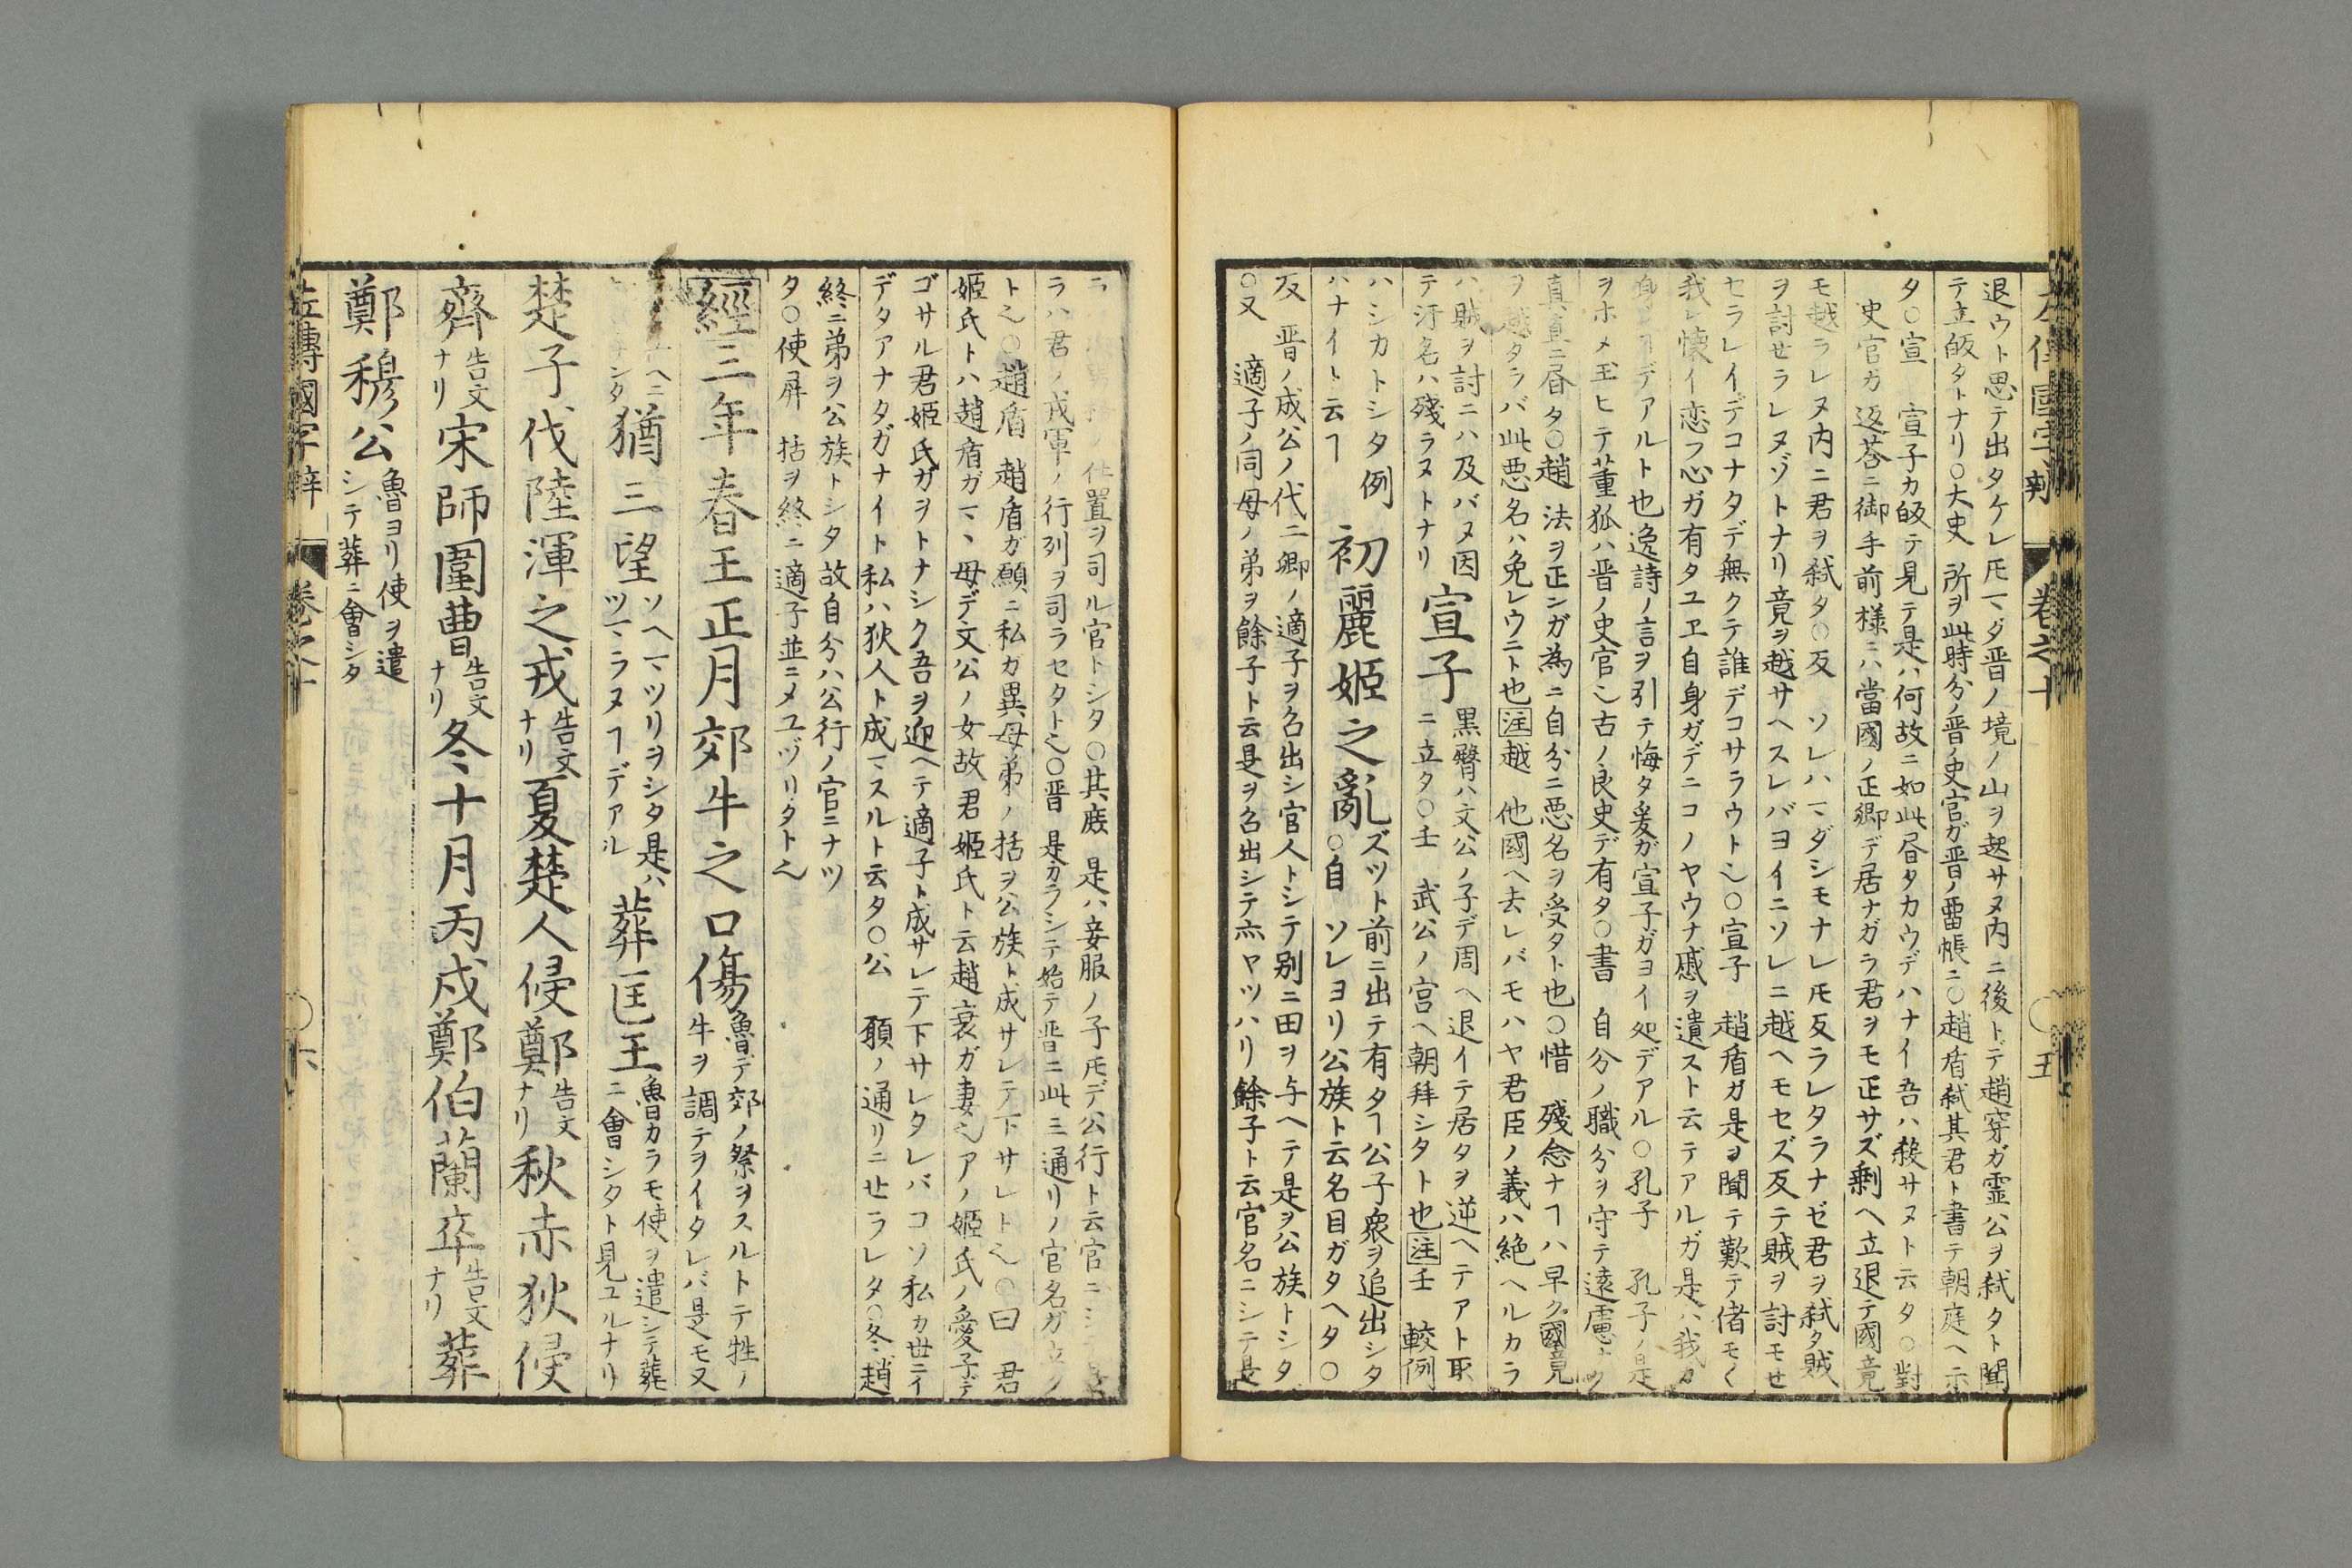 左傳國字辯 卷之十 五
退ウト思テ出タケレ𪜈マダ晋ノ境ノ山ヲ越サヌ内ニ後トデ趙穿ガ霊公ヲ弑タト聞
テ立皈タトナリ〇大史 所ヲ此時分ノ晋ノ史官ガ晋ノ畱帳ニ〇趙盾弑其君ト書テ朝庭ヘ示
タ〇宣 宣子カ皈テ見テ是ハ何故ニ如此昏タカウデハナイ吾ハ殺サヌト云タ〇對
史官カ返荅ニ御手前様ニハ當國ノ正卿デ居ナガラ君ヲモ正サズ剰ヘ立退テ國竟
モ越ラレヌ内ニ君ヲ弑タ〇反 ソレハマダシモナレ𪜈反ラレタラナゼ君ヲ弑タ賊
ヲ討セラレヌゾトナリ竟ヲ越サヘスレバヨイニソレニ越ヘモセズ反テ賊ヲ討モせ
セラレイデコナタデ無クテ誰デコサラウト〇宣子 趙盾ガ是ヲ聞テ歎テ偖モ〱
我レ懐イ恋フ心ガ有タユヱ自身ガデニコノヤウナ慼ヲ遺スト云テアルガ是ハ我カ
デアルト也逸詩ノ言ヲ引テ悔タ爰ガ宣子ガヨイ処デアル〇孔子 孔子ノ是
ヲホメ玉ヒテ董狐ハ晋ノ史官也古ノ良史デ有タ〇書 自分ノ職分ヲ守テ遠慮ナク
真直ニ昏タ〇趙 法ヲ正ンガ為ニ自分ニ悪名ヲ受タト也〇惜 殘念ナヿハ早ク國竟
ヲ越タラバ此悪名ハ免レウニト也注越 他國ヘ去レバモハヤ君臣ノ義ハ絶ヘルカラ
ハ賊ヲ討ニハ及バヌ因 宣子 黒臀ハ文公ノ子デ周ヘ退イテ居タヲ逆ヘテアト取
テ汚名ハ殘ラヌトナリ ニ立タ〇壬 武公ノ宮ヘ朝拜シタト也注壬 較例
ハシカトシタ例 初麗姬之亂 ズツト前ニ出テ有タヿ公子衆ヲ追出シタ
ハナイト云ヿ 〇自 ソレヨリ公族ト云名目ガタヘタ〇
反 晋ノ成公ノ代ニ卿ノ適子ヲ召出シ官人トシテ別ニ田ヲ与ヘテ是ヲ公族トシタ
〇又 適子ノ同母ノ弟ヲ餘子ト云是ヲ召出シテ亦ヤツハリ餘子ト云官名ニシテ是
仕置ヲ司ル官トシタ〇其庻 是ハ妾服ノ子𪜈デ公行ト云官ニシ
ラハ君ノ戎軍ノ行列ヲ司ラセタト也〇晋 是カラシテ始テ晋ニ此三通リノ官名ガ立タ
ト也〇趙盾 趙盾ガ願ニ私ガ異母弟ノ括ヲ公族ト成サレテ下サレト也〇曰 君
姬氏トハ趙盾ガマヽ母デ文公ノ女故君姬氏ト云趙衰ガ妻也アノ姬氏ノ愛子デ
ゴサル君姬氏ガヲトナシク吾ヲ迎ヘテ適子ト成サレテ下サレタレバコソ私カ世ニイ
デタアナタガナイト私ハ狄人ト成マスルト云タ〇公 願ノ通リニせラレタ〇冬 趙
終ニ弟ヲ公族トシタ故自分ハ公行ノ官ニナツ
タ〇使屏 括ヲ終ニ適子並ニメユヅリタト也
經三年春王正月郊牛之口傷 魯デ郊ノ祭ヲスルトテ牲ノ
牛ヲ調テヲイタレバ是モ又
猶三望 ソヘマツリヲシタ是ハ
ツマラヌヿデアル 葬匡王 魯カラモ使ヲ遣シテ葬
ニ會シタト見ユルナリ
楚子伐陸渾之戎 告文ナリ 夏楚人侵鄭 告文ナリ 秋赤狄侵
齊 告文ナリ 宋師圍曹 告文ナリ 冬十月丙戍鄭伯蘭卒 告文ナリ 葬
鄭穆公 魯ヨリ使ヲ遣
シテ葬ニ會シタ
左傳國字辯 卷之十 六